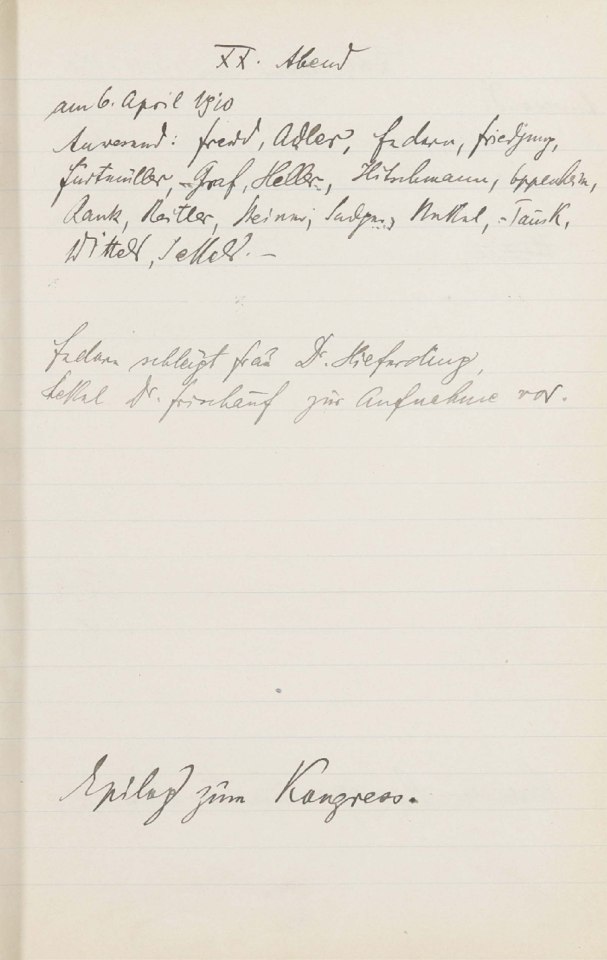 XX. Abend
am 6. April 1910
Anwesend: Freud, Adler, Federn, Friedjung,
Furtmüller, Graf, Heller, Hitschmann, Oppenheim,
Rank, Reitler, Steiner, Sadger, Stekel, Tausk,
Wittels,
Federn schlägt Frau Dr. Hilferding,
Stekel Dr. Frischauf zur Aufnahme vor.
Epilog zum Kongress.